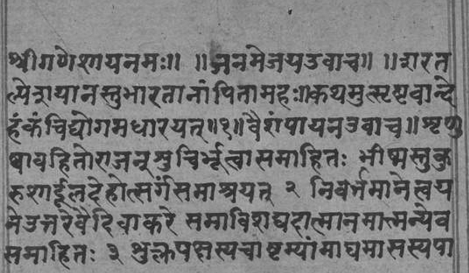 श्रीगणेशायनमः॥ ॥जनमेजयउवाच॥ ॥शरत
ल्पेशयानस्तुभारतानांपितामहः॥कथमुत्सृष्टवान्दे
हंकंचिद्योगमधारयत्॥१॥वैशंपायनउवाच॥शृणु
ष्वावहितोराजन्शुचिर्भूत्वासमाहितः भीष्मस्तुकु
रुशार्दूलदेहोत्सर्गंसमाश्रयत् २ निवर्त्तमानेत्वय
नेउत्तरेवेदिवाकरे समाविशद्यदात्मानमात्मन्येव
समाहितः ३ शुक्लपक्षस्यचाष्टम्यांमाघमासस्यपा